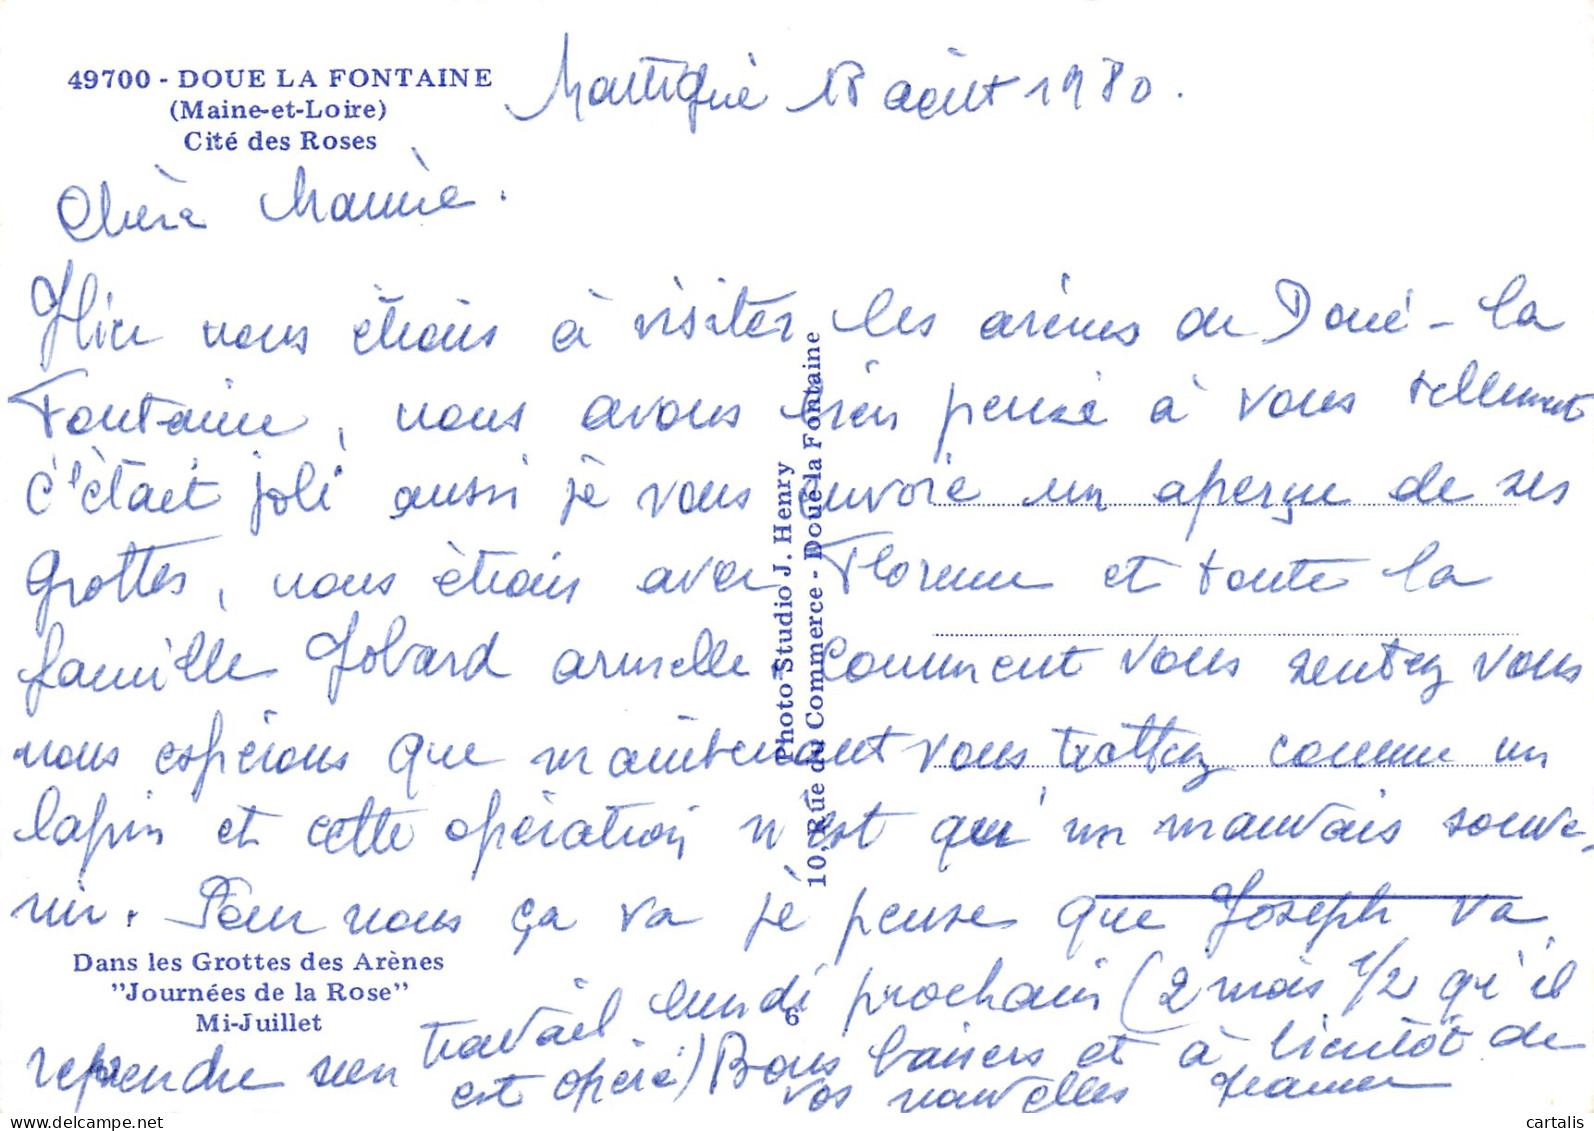 49700 - DOUE LA FONTAINE
(Maine-et-Loire)
Cité des Roses
Martigné 18 août 1980.
Chère Mamie.
Hier nous étions à visiter les arènes de Doué-la
Fontaine, nous avons bien pensé à vous tellement
c'était joli aussi je vous envoie un aperçu de ses
grottes, nous étions avec Florence et toute la
famille Jobard armelle comment vous sentez vous
nous espérions que maintenant vous trottez comme un
lapin et cette opération n'est qu'un mauvais souve-
nir. Pour nous ça va je pense que Joseph va
reprendre son travail lundi prochain (2 mois 1/2 qu'il
est opéré) Bons baisers et à bientôt de
vos nouvelles
Photo Studio J. Henry
10, Rue du Commerce - Doué la Fontaine
6
Dans les Grottes des Arènes
"Journées de la Rose"
Mi-Juillet
cartalis
www.delcampe.net